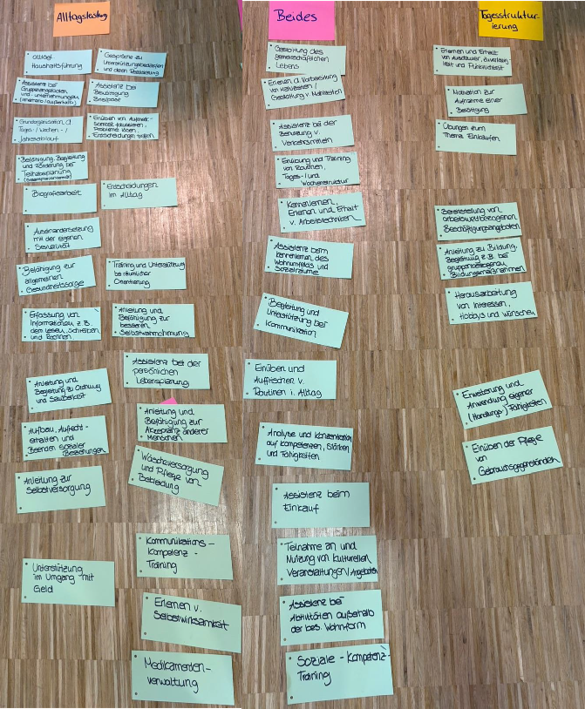 Alltagsleistung
Alltägl.
Haushaltsführung
Gespräche zu
Assistenz bei
Assistenz bei
Beiträge
Grundorganisation d.
Tages-/Wochen-/
Jahresablauf
Einüben von
Probleme lösen,
Entscheidungen treffen
Befähigung, Begleitung
und Förderung bei
Teilhabeplanung
Biografiearbeit
Entscheidungen
im Alltag
Auseinandersetzung
mit der eigenen
Sexualität
Befähigung zur
allgemeinen
Gesundheitssorge
Training und Unterstützung
bei räumlicher
Orientierung
Erfassung von
Informationen z.B.
dem Lesen, Schreiben
und Rechnen
Anleitung und
Befähigung zur
besseren
Selbstwahrnehmung
Assistenz bei der
persönlichen
Lebensplanung
Anleitung und
Begleitung zu Ordnung
und Sauberkeit
Anleitung und
Befähigung zur
Akzeptanz anderer
Menschen
Aufbau, Aufrecht-
erhalten und
Beenden sozialer
Beziehungen
Wäscheversorgung
und Pflege von
Bekleidung
Anleitung zur
Selbstversorgung
Kommunikations-
Kompetenz-
Training
Unterstützung
im Umgang mit
Geld
Erlernen v.
Selbstwirksamkeit
Medikamenten-
verwaltung
Beides
Gestaltung des
gemeinschaftlichen
Lebens
Erlernen d. Vorbereitung
von Mahlzeiten /
Gestaltung v. Mahlzeiten
Assistenz bei der
Benutzung v.
Verkehrsmitteln
Einübung und Training
von Routinen,
Tages- und
Wochenstruktur
Kennenlernen,
Erlernen und Erhalt
v. Arbeitstechniken
Assistenz beim
Kennenlernen des
Wohnumfelds und
Sozialraums
Begleitung und
Unterstützung bei
Kommunikation
Einüben und
Auffrischen v.
Routinen i. Alltag
Analyse und Konzentration
auf Kompetenzen, Stärken
und Fähigkeiten
Assistenz beim
Einkauf
Teilnahme an und
Nutzung von kulturellen
Veranstaltungen/Angebote
Assistenz bei
Aktivitäten außerhalb
der bes. Wohnform
Soziale-Kompetenz-
Training
Tagesstruktur-
ierung
Erlernen und Erhalt
von Ausdauer, Zuverlässig-
keit und Pünktlichkeit
Motivation zur
Aufnahme einer
Tätigkeit
Übungen zum
Thema Einkaufen
Bereitstellung von
arbeitsweltbezogenen
Beschäftigungsangeboten
Anleitung zu Bildung,
Begleitung z.B. bei
gruppenbezogenen
Bildungsmaßnahmen
Herausarbeitung
von Interessen,
Hobbys und Wünschen
Erweiterung und
Anwendung eigener
(Handlungs-) Fähigkeiten
Einüben der Pflege
von
Gebrauchsgegenständen